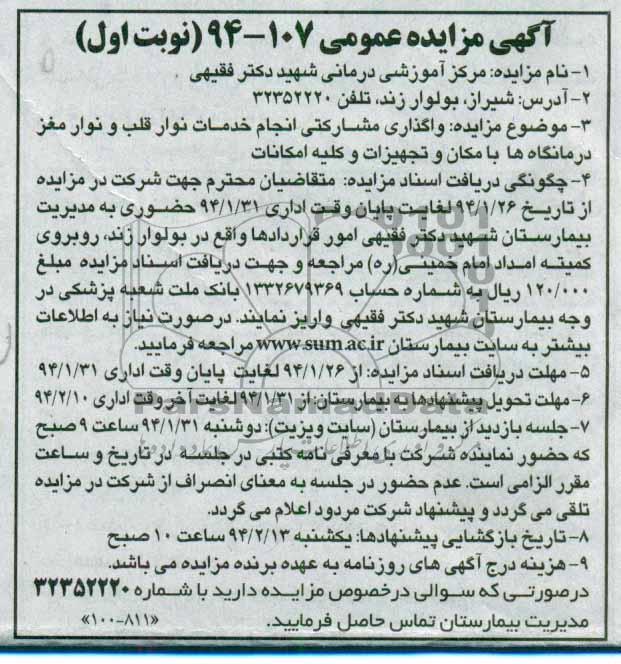 آگهی مزایده عمومی ۱۰۷-۹۴ (نوبت اول)
۱- نام مزایده: مرکز آموزشی درمانی شهید دکتر فقیهی
۲- آدرس: شیراز، بولوار زند، تلفن ۳۲۳۵۲۲۲۰
۳- موضوع مزایده: واگذاری مشارکتی انجام خدمات نوار قلب و نوار مغز
درمانگاه ها با مکان و تجهیزات و کلیه امکانات
۴- چگونگی دریافت اسناد مزایده: متقاضیان محترم جهت شرکت در مزایده
از تاریخ ۹۴/۱/۲۶ لغایت پایان وقت اداری ۹۴/۱/۳۱ حضوری به مدیریت
بیمارستان شهید دکتر فقیهی امور قراردادها واقع در بولوار زند، روبروی
کمیته امداد امام خمینی(ره) مراجعه و جهت دریافت اسناد مزایده مبلغ
۱۲۰/۰۰۰ ریال به شماره حساب ۱۳۳۲۶۷۹۳۶۹ بانک ملت شعبه پزشکی در
وجه بیمارستان شهید دکتر فقیهی واریز نمایند. درصورت نیاز به اطلاعات
بیشتر به سایت بیمارستان www.sum.ac.ir مراجعه فرمایید.
۵- مهلت دریافت اسناد مزایده: از ۹۴/۱/۲۶ لغایت پایان وقت اداری ۹۴/۱/۳۱
۶- مهلت تحویل پیشنهادها به بیمارستان: از ۹۴/۱/۳۱ لغایت آخر وقت اداری ۹۴/۲/۱۰
۷- جلسه بازدید از بیمارستان (سایت ویزیت): دوشنبه ۹۴/۱/۳۱ ساعت ۹ صبح
که حضور نماینده شرکت با معرفی نامه کتبی در جلسه در تاریخ و ساعت
مقرر الزامی است. عدم حضور در جلسه به معنای انصراف از شرکت در مزایده
تلقی می گردد و پیشنهاد شرکت مردود اعلام می گردد.
۸- تاریخ بازگشایی پیشنهادها: یکشنبه ۹۴/۲/۱۳ ساعت ۱۰ صبح
۹- هزینه درج آگهی های روزنامه به عهده برنده مزایده می باشد.
درصورتی که سوالی درخصوص مزایده دارید با شماره ۳۲۳۵۲۲۲۰
مدیریت بیمارستان تماس حاصل فرمایید.
«۱۰۰-۸۱۱»
ParsNamadData